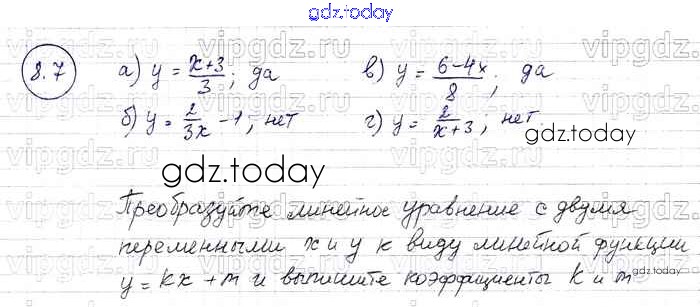 gdz.today
8.7 а) y = (x+3)/3; да в) y = (6-4x)/8; да
б) y = 2/3x - 1; нет г) y = 2/(x+3); нет.
gdz.today
gdz.today
Преобразуйте линейное уравнение с двумя
переменными x и y к виду линейной функции
y = kx + m и выпишите коэффициенты k и m